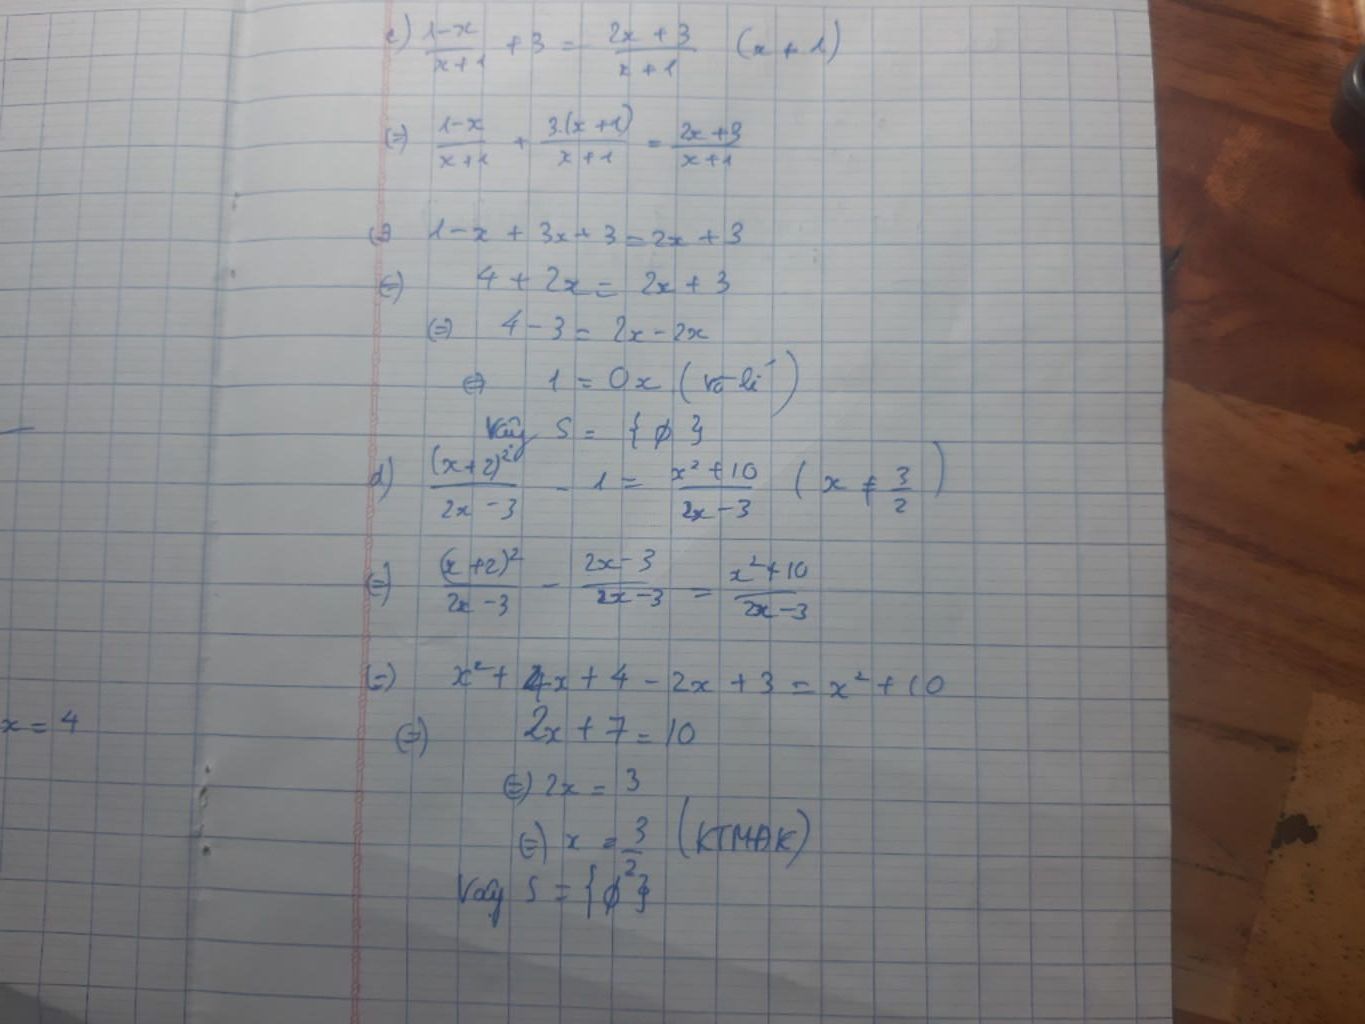 c) (1-x)/(x+1) + 3 = (2x+3)/(x+1) (x + 1)
(=) (1-x)/(x+1) + 3.(x+1)/(x+1) = (2x+3)/(x+1)
(=) 1-x + 3x+3 = 2x+3
(=) 4 + 2x = 2x + 3
(=) 4-3 = 2x-2x
(=) 1 = 0x (vô lí)
Vậy S = {∅}
d) (x+2)²/(2x-3) - 1 = (x²+10)/(2x-3) (x ≠ 3/2)
(=) (x+2)²/(2x-3) - (2x-3)/(2x-3) = (x²+10)/(2x-3)
(=) x² + 4x + 4 - 2x + 3 = x² + 10
x = 4
(=) 2x + 7 = 10
(=) 2x = 3
(=) x = 3/2 (KTMĐK)
Vậy S = {∅}